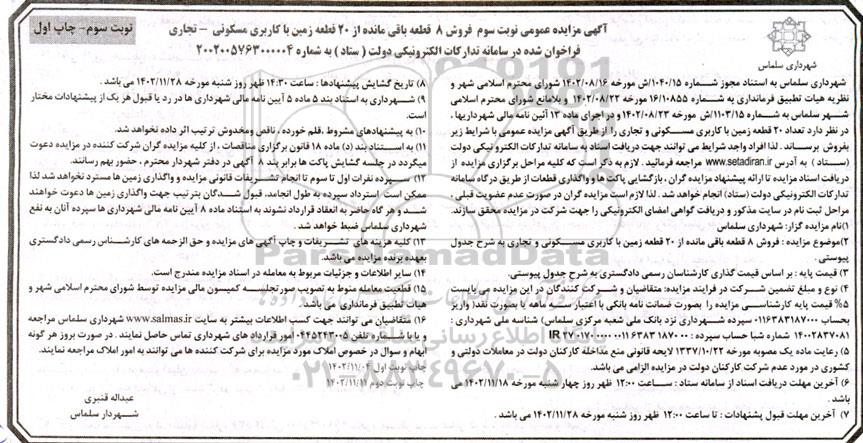 نوبت سوم- چاپ اول
آگهی مزایده عمومی نوبت سوم فروش ۸ قطعه باقی مانده از ۲۰ قطعه زمین با کاربری مسکونی – تجاری
فراخوان شده در سامانه تدارکات الکترونیکی دولت ( ستاد ) به شماره ۲۰۰۲۰۰۵۷۶۳۰۰۰۰۰۴
شهرداری سلماس
شهرداری سلماس به استناد مجوز شماره ۱۰۴۰/۱۵/ش مورخه ۱۴۰۲/۰۸/۱۶ شورای محترم اسلامی شهر و
نظریه هیات تطبیق فرمانداری به شماره ۱۶/۱۰۸۵۵ مورخه ۱۴۰۲/۰۸/۲۲ و بلامانع شورای محترم اسلامی
شهر سلماس به شماره ۱۱۰۳/۱۵/ش مورخه ۱۴۰۲/۰۸/۲۳ و در اجرای ماده ۱۳ آئین نامه مالی شهرداریها ،
در نظر دارد تعداد ۲۰ قطعه زمین با کاربری مسکونی و تجاری را از طریق آگهی مزایده عمومی با شرایط زیر
بفروش برساند . لذا افراد واجد شرایط می توانند جهت دریافت اسناد به سامانه تدارکات الکترونیکی دولت
(ستاد) به آدرس www.setadiran.ir مراجعه فرمائید . لازم به ذکر است که کلیه مراحل برگزاری مزایده از
دریافت اسناد مزایده تا ارائه پیشنهاد مزایده گران ، بازگشایی پاکت ها و واگذاری قطعات از طریق درگاه سامانه
تدارکات الکترونیکی دولت (ستاد) انجام خواهد شد . لذا لازم است مزایده گران در صورت عدم عضویت قبلی ،
مراحل ثبت نام در سایت مذکور و دریافت گواهی امضای الکترونیکی را جهت شرکت در مزایده محقق سازند.
۱)نام مزایده گزار: شهرداری سلماس
۲)موضوع مزایده : فروش ۸ قطعه باقی مانده از ۲۰ قطعه زمین با کاربری مسکونی و تجاری به شرح جدول
پیوستی .
۳) قیمت پایه : بر اساس قیمت گذاری کارشناسان رسمی دادگستری به شرح جدول پیوستی.
۴) نوع و مبلغ تضمین شرکت در فرایند مزایده: متقاضیان و شرکت کنندگان در این مزایده می بایست
۵% قیمت پایه کارشناسی مزایده را بصورت ضمانت نامه بانکی با اعتبار سه ماهه یا بصورت نقد( واریز
بحساب ۰۱۱۶۳۸۳۱۸۷۰۰۰ سپرده شهرداری نزد بانک ملی شعبه مرکزی سلماس) شناسه ملی شهرداری :
۱۴۰۰۲۸۳۷۰۸۱ شماره شبا حساب سپرده :
۵) رعایت ماده یک مصوبه مورخه ۱۳۳۷/۱۰/۲۲ لایحه قانونی منع مداخله کارکنان دولت در معاملات دولتی و
کشوری در مورد عدم شرکت کارکنان دولت در مزایده الزامی می باشد.
۶) آخرین مهلت دریافت اسناد از سامانه ستاد : ساعت ۱۲:۰۰ ظهر روز چهار شنبه مورخه ۱۴۰۲/۱۱/۱۸ می
باشد .
۷) آخرین مهلت قبول پشنهادات : تا ساعت ۱۲:۰۰ ظهر روز شنبه مورخه ۱۴۰۲/۱۱/۲۸ می باشد .
۸) تاریخ گشایش پیشنهادها : ساعت ۱۴:۳۰ ظهر روز شنبه مورخه ۱۴۰۲/۱۱/۲۸ می باشد .
۹) شهرداری به استناد بند ۵ ماده ۵ آیین نامه مالی شهرداری ها در رد یا قبول هر یک از پیشنهادات مختار
است.
۱۰) به پیشنهادهای مشروط ،قلم خورده ، ناقص ومخدوش ترتیب اثر داده نخواهد شد.
۱۱) به استناد بند (د) ماده ۱۸ قانون برگزاری مناقصات ، از کلیه مزایده گران شرکت کننده در مزایده دعوت
میگردد در جلسه گشایش پاکت ها برابر بند ۸ آگهی در دفتر شهردار محترم ، حضور بهم رسانند.
۱۲) سپرده نفرات اول تا سوم تا انجام تشریفات قانونی مزایده و واگذاری زمین ها مسترد نخواهد شد لذا
ممکن است استرداد سپرده به طول انجامد. قبول شدگان بترتیب جهت واگذاری زمین ها دعوت خواهند
شد و هر گاه حاضر به انعقاد قرارداد نشوند به استناد ماده ۸ آیین نامه مالی شهرداری ها سپرده آنان به نفع
شهرداری سلماس ضبط خواهد شد .
۱۳) کلیه هزینه های تشریفات و چاپ آگهی های مزایده و حق الزحمه های کارشناس رسمی دادگستری
بعهده برنده مزایده می باشد.
۱۴) سایر اطلاعات و جزئیات مربوط به معامله در اسناد مزایده مندرج است.
۱۵) قطعیت معامله منوط به تصویب صورتجلسه کمیسون مالی مزایده توسط شورای محترم اسلامی شهر و
هیات تطبیق فرمانداری می باشد.
۱۶) متقاضیان می توانند جهت کسب اطلاعات بیشتر به سایت www.salmas.ir شهرداری سلماس مراجعه
و یا با شماره تلفن ۰۴۴۵۲۴۳۰۰۵ امور قرارداد های شهرداری تماس حاصل نمایند . در صورت بروز هر گونه
ابهام و سوال در خصوص املاک مورد مزایده برای شرکت کننده ها می توانند به امور املاک مراجعه نمایند.
چاپ نوبت اول ۱۴۰۲/۱۱/۰۴
چاپ نوبت دوم ۱۴۰۲/۱۱/۱۱
عبداله قنبری
شهردار سلماس
ParsNamadData
۰۲۱-۸۸۳۴۹۶۷۰-۵